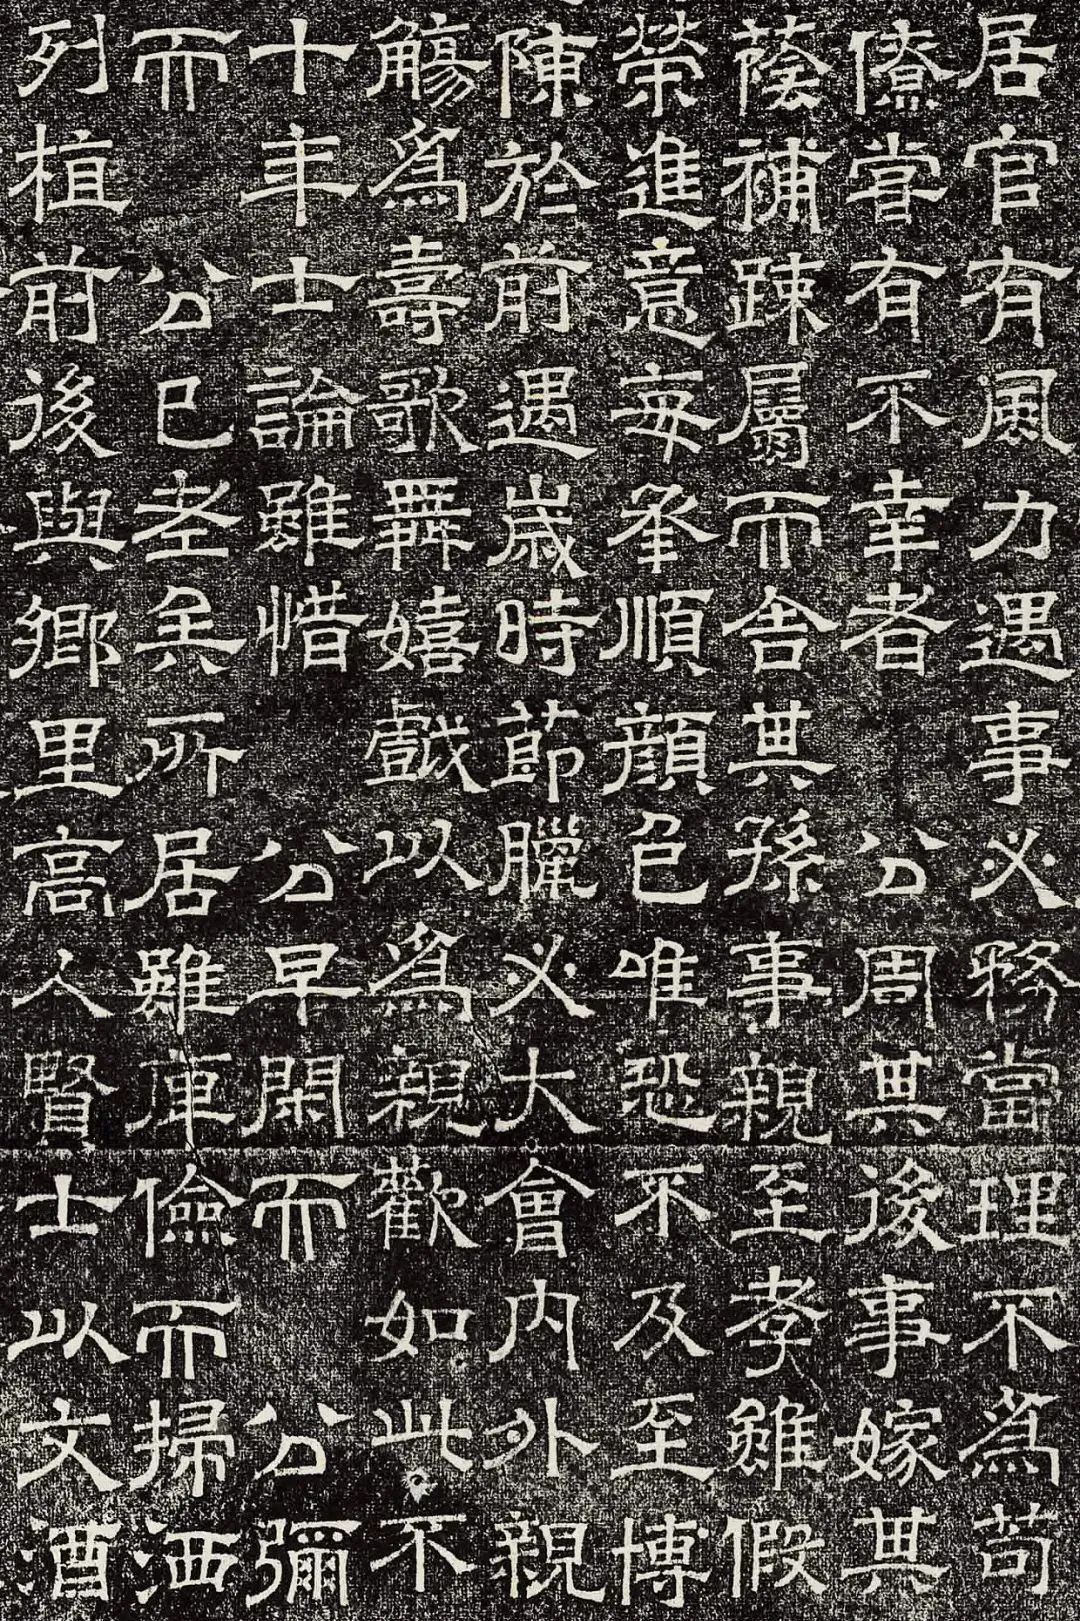 居官有風力遇事必務當理不為苟
僚嘗有不幸者公周其後事嫁其
蔭補踈屬而舍其孫事親至孝雖假
榮進意每承順顏色唯恐不及至博
陳於前遇歲時節臘必大會內外親
觴為壽歌舞嬉戲以為親歡如此不
十年士論雖惜公早閑而公彌
而公已老矣所居雖庳儉而掃洒
列植前後與鄉里高人賢士以文酒